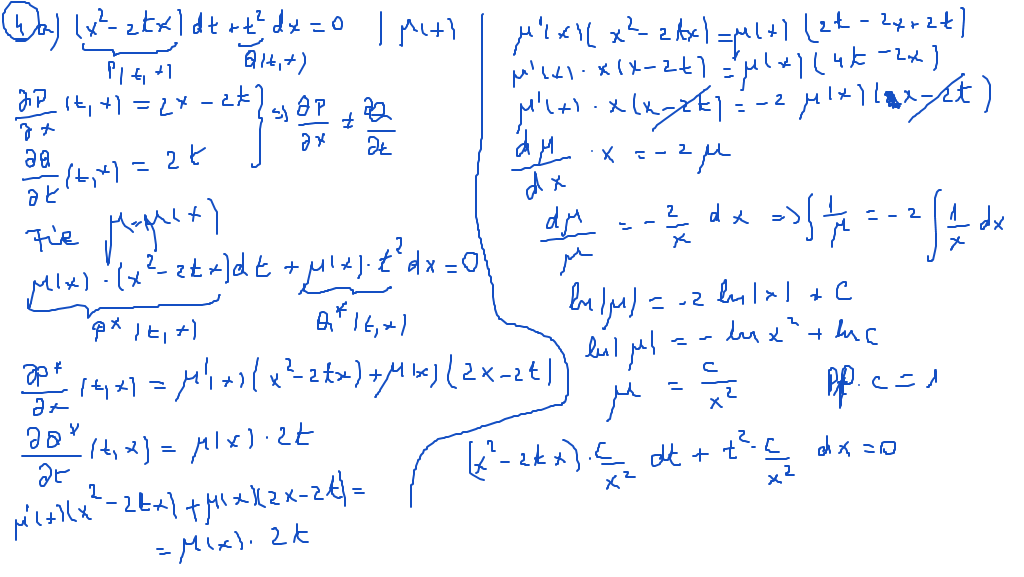 4 a) (x² - 2tx) dt + t² dx = 0 | μ(x)
P(t, x) Q(t, x)
∂P/∂x (t, x) = 2x - 2t } => ∂P/∂x ≠ ∂Q/∂t
∂Q/∂t (t, x) = 2t
Fie μ = μ(x)
μ(x) · (x² - 2tx) dt + μ(x) · t² dx = 0
P* (t, x) Q* (t, x)
∂P*/∂x (t, x) = μ'(x) (x² - 2tx) + μ(x) (2x - 2t)
∂Q*/∂t (t, x) = μ(x) · 2t
μ'(x)(x² - 2tx) + μ(x)(2x - 2t) =
= μ(x) · 2t
μ'(x)( x² - 2tx) = μ(x) (2t - 2x + 2t)
μ'(x) · x(x - 2t) = μ(x) (4t - 2x)
μ'(x) · x (x - 2t) = -2 μ(x) (x - 2t)
dμ/dx · x = -2 μ
dμ/μ = - 2/x dx => ∫ 1/μ = -2 ∫ 1/x dx
ln|μ| = -2 ln|x| + C
ln|μ| = - ln x² + ln C
μ = C/x² Pp. c = 1
(x² - 2tx) · C/x² dt + t² · C/x² dx = 0